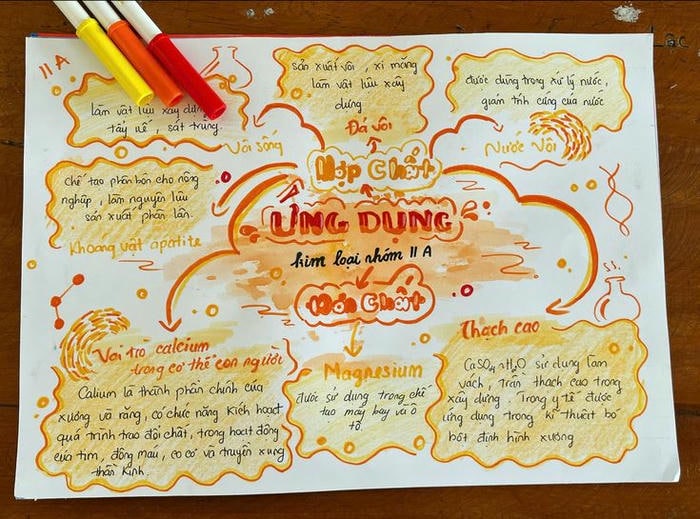 IIA
làm vật liệu xây dựng
tẩy uế, sát trùng.
Vôi sống
sản xuất vôi, xi măng
làm vật liệu xây
dựng
Đá vôi
được dùng trong xử lý nước,
giảm tính cứng của nước
Nước Vôi
Hợp Chất
Chế tạo phân bón cho nông
nghiệp, làm nguyên liệu
sản xuất phân lân.
Khoáng vật apatite
ỨNG DỤNG
kim loại nhóm II A
Đơn Chất
Vai trò calcium
trong cơ thể con người
Calium là thành phần chính của
xương và răng, có chức năng kích hoạt
quá trình trao đổi chất, trong hoạt động
của tim, đông máu, co cơ và truyền xung
thần kinh.
Magnesium
được sử dụng trong chế
tạo máy bay và ô
tô
Thạch cao
CaSO4.nH2O sử dụng làm
vách, trần thạch cao trong
xây dựng. Trong y tế được
ứng dụng trong kĩ thuật bó
bột định hình xương